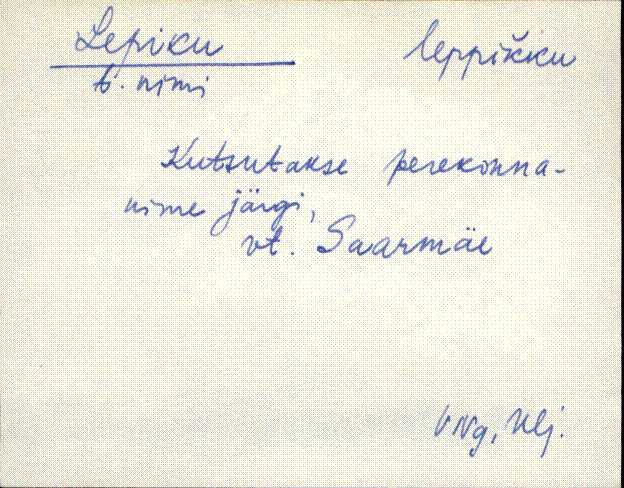 Lepiku leppikku
t. nimi
Kutsutakse perekonna-
nime järgi,
vt. Saarmäe
VNg, Ulj.